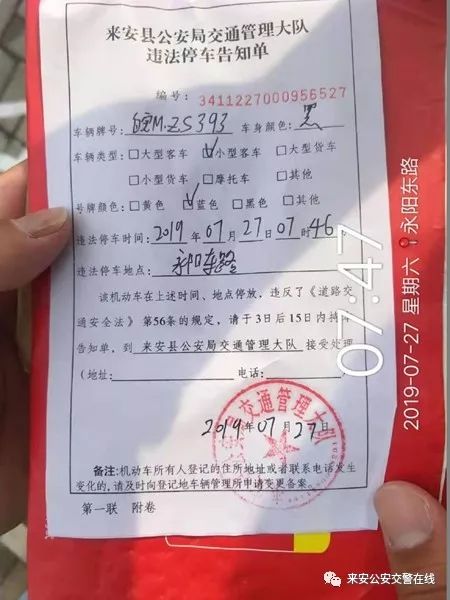 来安县公安局交通管理大队
违法停车告知单
编号: 3411227000956527
车辆牌号: 皖M·ZS393 车身颜色: 黑
车辆类型: □大型客车 ☑小型客车 □大型货车
□小型货车 □摩托车 □其他
号牌颜色: □黄色 ☑蓝色 □黑色 □其他
违法停车时间: 2019年07月27日07时46分
违法停车地点: 永阳东路
该机动车在上述时间、地点停放,违反了《道路交
通安全法》第56条的规定,请于3日后15日内持
告知单,到 来安县公安局交通管理大队 接受处理
(地址: 电话:
交通管理大队
2019年07月27日
备注:机动车所有人登记的住所地址或者联系电话发生
变化的,请及时向登记地车辆管理所申请变更备案。
第一联 附卷
07:47
2019-07-27 星期六 永阳东路
来安公安交警在线